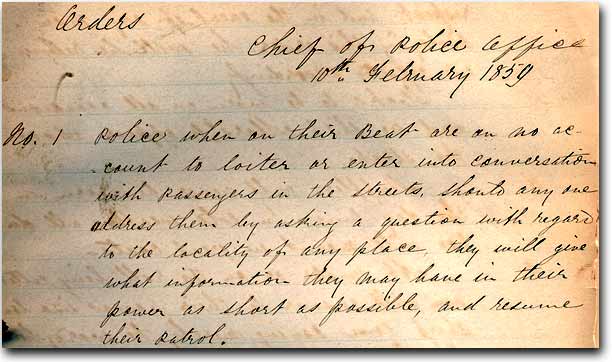 Orders
Chief of Police Office
10th February 1859
No. 1 Police when on their Beat are on no ac-
-count to loiter or enter into conversation
with passengers in the streets, should any one
address them by asking a question with regard
to the locality of any place, they will give
what information they may have in their
power as short as possible, and resume
their patrol.